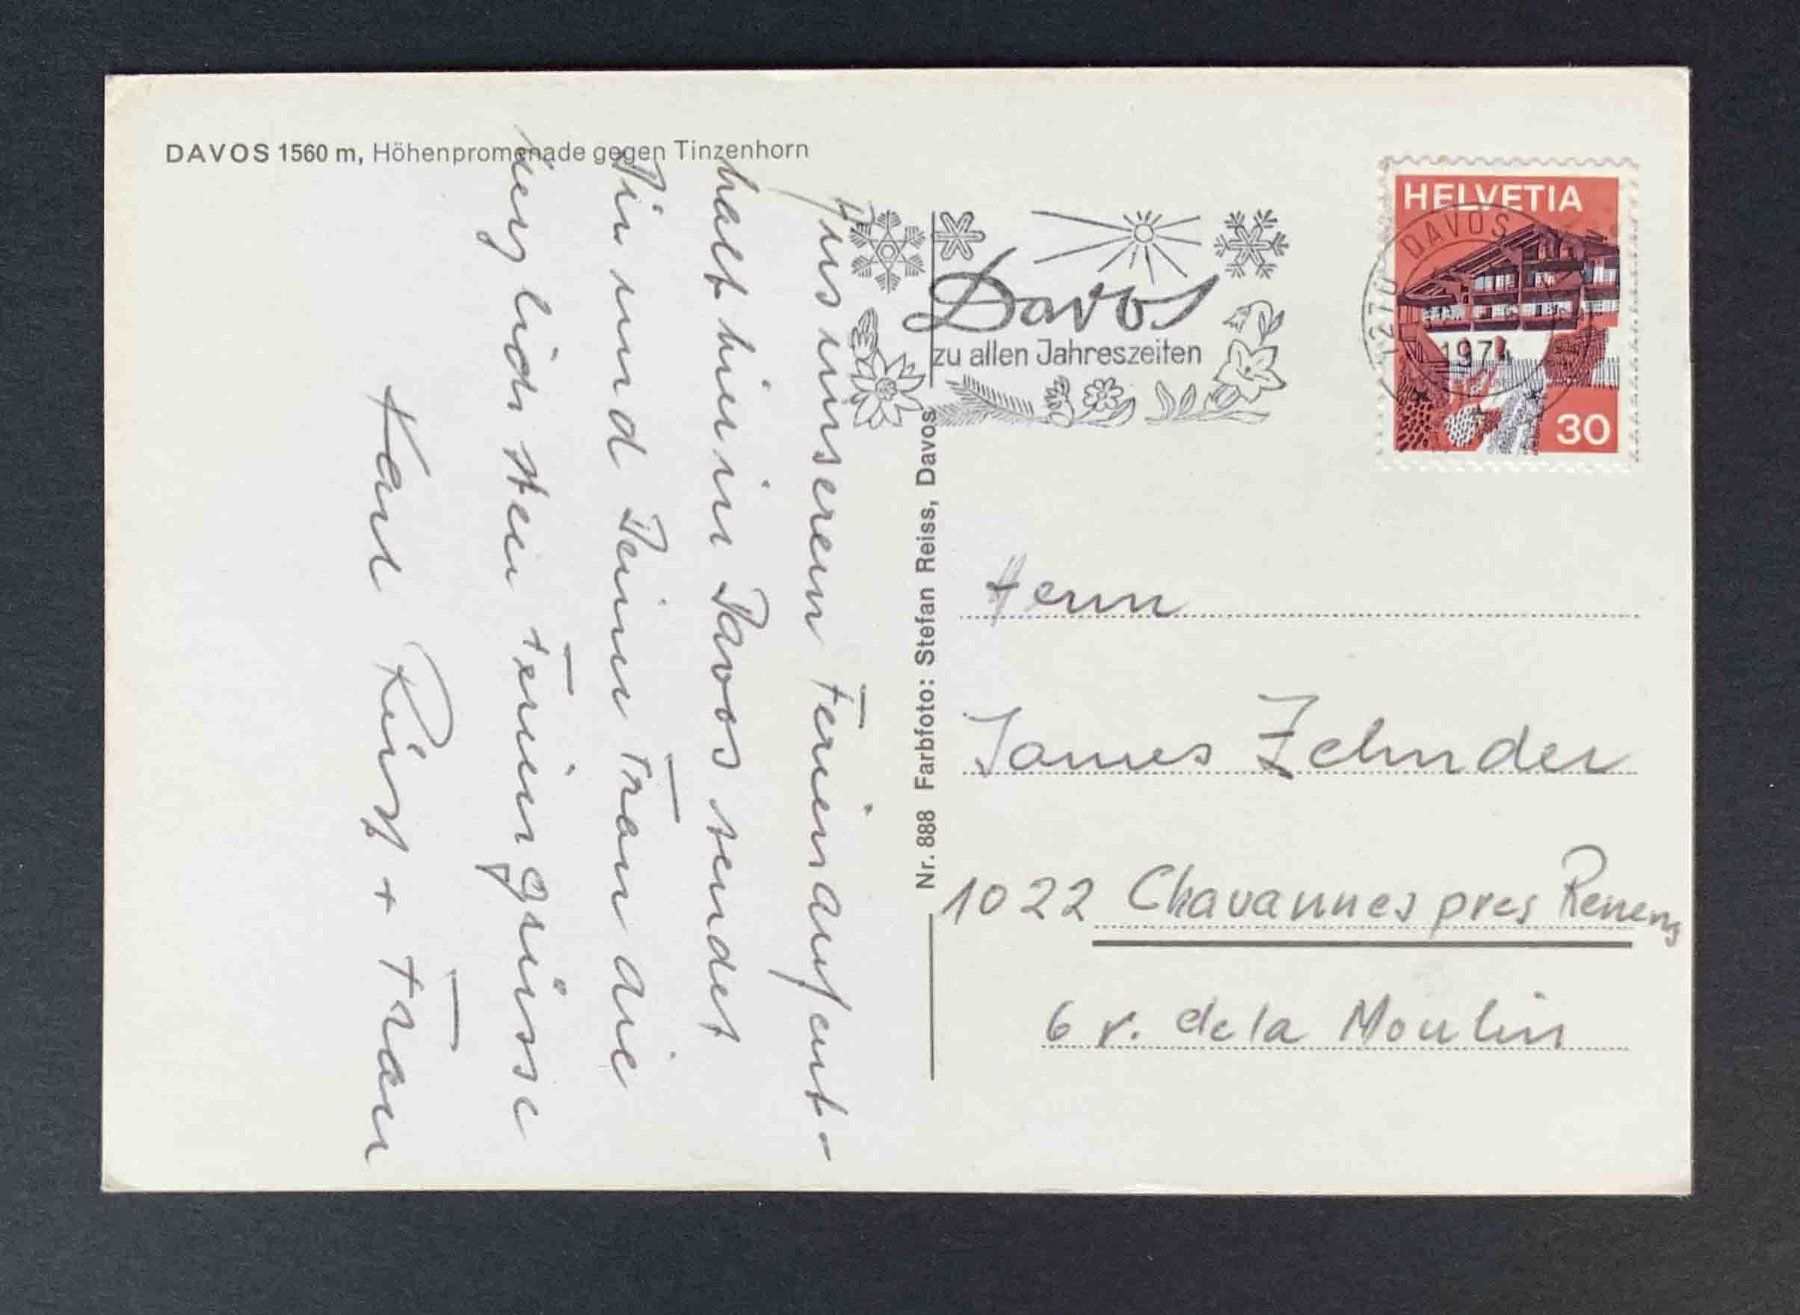 DAVOS 1560 m, Höhenpromenade gegen Tinzenhorn
Aus unserem Ferienaufent-
halt hier in Davos sendet
Dir und Deiner Frau die
herzlichsten Feriengrüsse
Karl Rüst + Frau
Nr. 888 Farbfoto: Stefan Reiss, Davos
Davos
zu allen Jahreszeiten
HELVETIA
DAVOS
7270
1974
30
Herrn
James Zehnder
1022 Chavannes pres Renens
6 r. de la Moulin